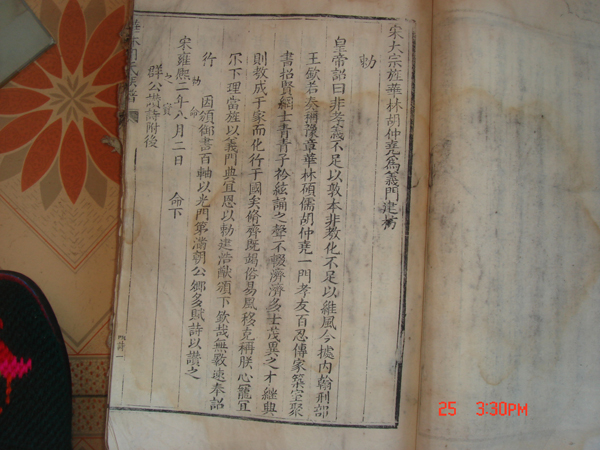 宋太宗旌華林胡仲堯為義門建坊
勅
皇帝詔曰非孝義不足以敦本非教化不足以維風今據內翰刑部
王欽若奏珊豫章華林碩儒胡仲堯一門孝友百忍傳家築室聚
書招賢網士青青子衿絃誦之聲不輟濟濟多士茂異之才繼興
則教成于家而化行于國矣脩齊既錫俗易風移克稱朕心寵宜
尔下理當旌以義門典宜恩以勅建浩猷頒下欽哉無斁速奉詔
行 因頒御書百軸以光門第滿朝公鄉多賦詩以讚之
宋雍熙二年八月二日 命下
勅命之寶
群公讚詩附後
胡氏族譜
25 3:30PM